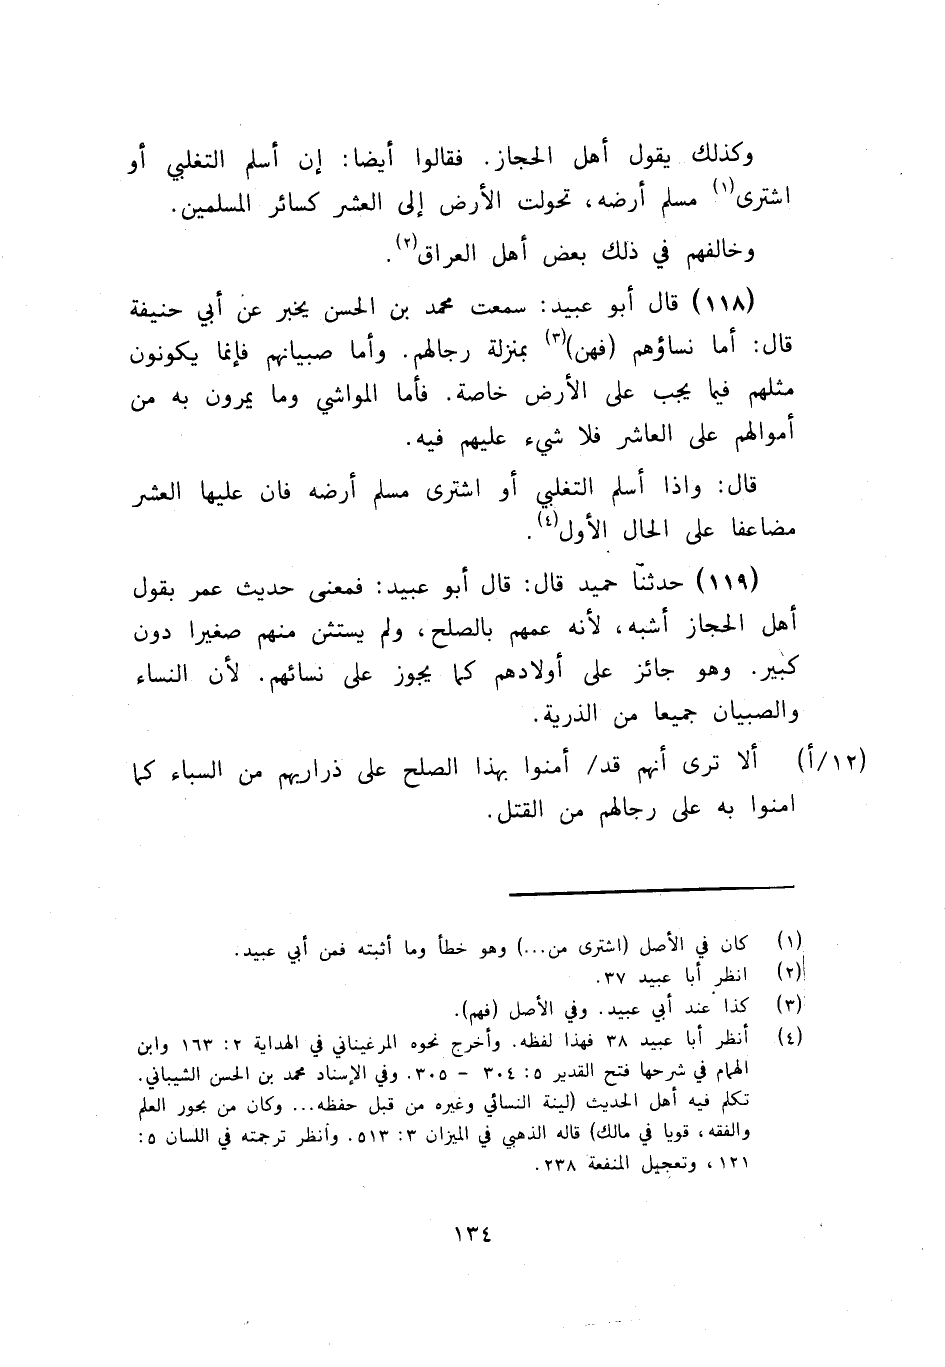 وكذلك يقول أهل الحجاز. فقالوا أيضا: إن أسلم التغلبي أو
اشترى(١) مسلم أرضه، تحولت الأرض إلى العشر كسائر المسلمين.
وخالفهم في ذلك بعض أهل العراق(٢).
(١١٨) قال أبو عبيد: سمعت محمد بن الحسن يخبر عن أبي حنيفة
قال: أما نساؤهم (فهن)(٣) بمنزلة رجالهم. وأما صبيانهم فإنما يكونون
مثلهم فيما يجب على الأرض خاصة. فأما المواشي وما يمرون به من
أموالهم على العاشر فلا شيء عليهم فيه.
قال: واذا أسلم التغلبي أو اشترى مسلم أرضه فان عليها العشر
مضاعفا على الحال الأول(٤).
(١١٩) حدثنا حميد قال: قال أبو عبيد: فمعنى حديث عمر بقول
أهل الحجاز أشبه، لأنه عمهم بالصلح، ولم يستثن منهم صغيرا دون
كبير. وهو جائز على أولادهم كما يجوز على نسائهم. لأن النساء
والصبيان جميعا من الذرية.
(١٢/أ) ألا ترى أنهم قد/ أمنوا بهذا الصلح على ذراريهم من السباء كما
امنوا به على رجالهم من القتل.
(١) كان في الأصل (اشترى من...) وهو خطأ وما أثبته فمن أبي عبيد.
(٢) انظر أبا عبيد ٣٧.
(٣) كذا عند أبي عبيد. وفي الأصل (فهم).
(٤) أنظر أبا عبيد ٣٨ فهذا لفظه. وأخرج نحوه المرغيناني في الهداية ٢: ١٦٣ وابن
الهمام في شرحها فتح القدير ٥: ٣٠٤ - ٣٠٥. وفي الإسناد محمد بن الحسن الشيباني.
تكلم فيه أهل الحديث (لينة النسائي وغيره من قبل حفظه... وكان من بحور العلم
والفقه، قويا في مالك) قاله الذهبي في الميزان ٣: ٥١٣. وأنظر ترجمته في اللسان ٥:
١٢١، وتعجيل المنفعة ٢٣٨.
١٣٤